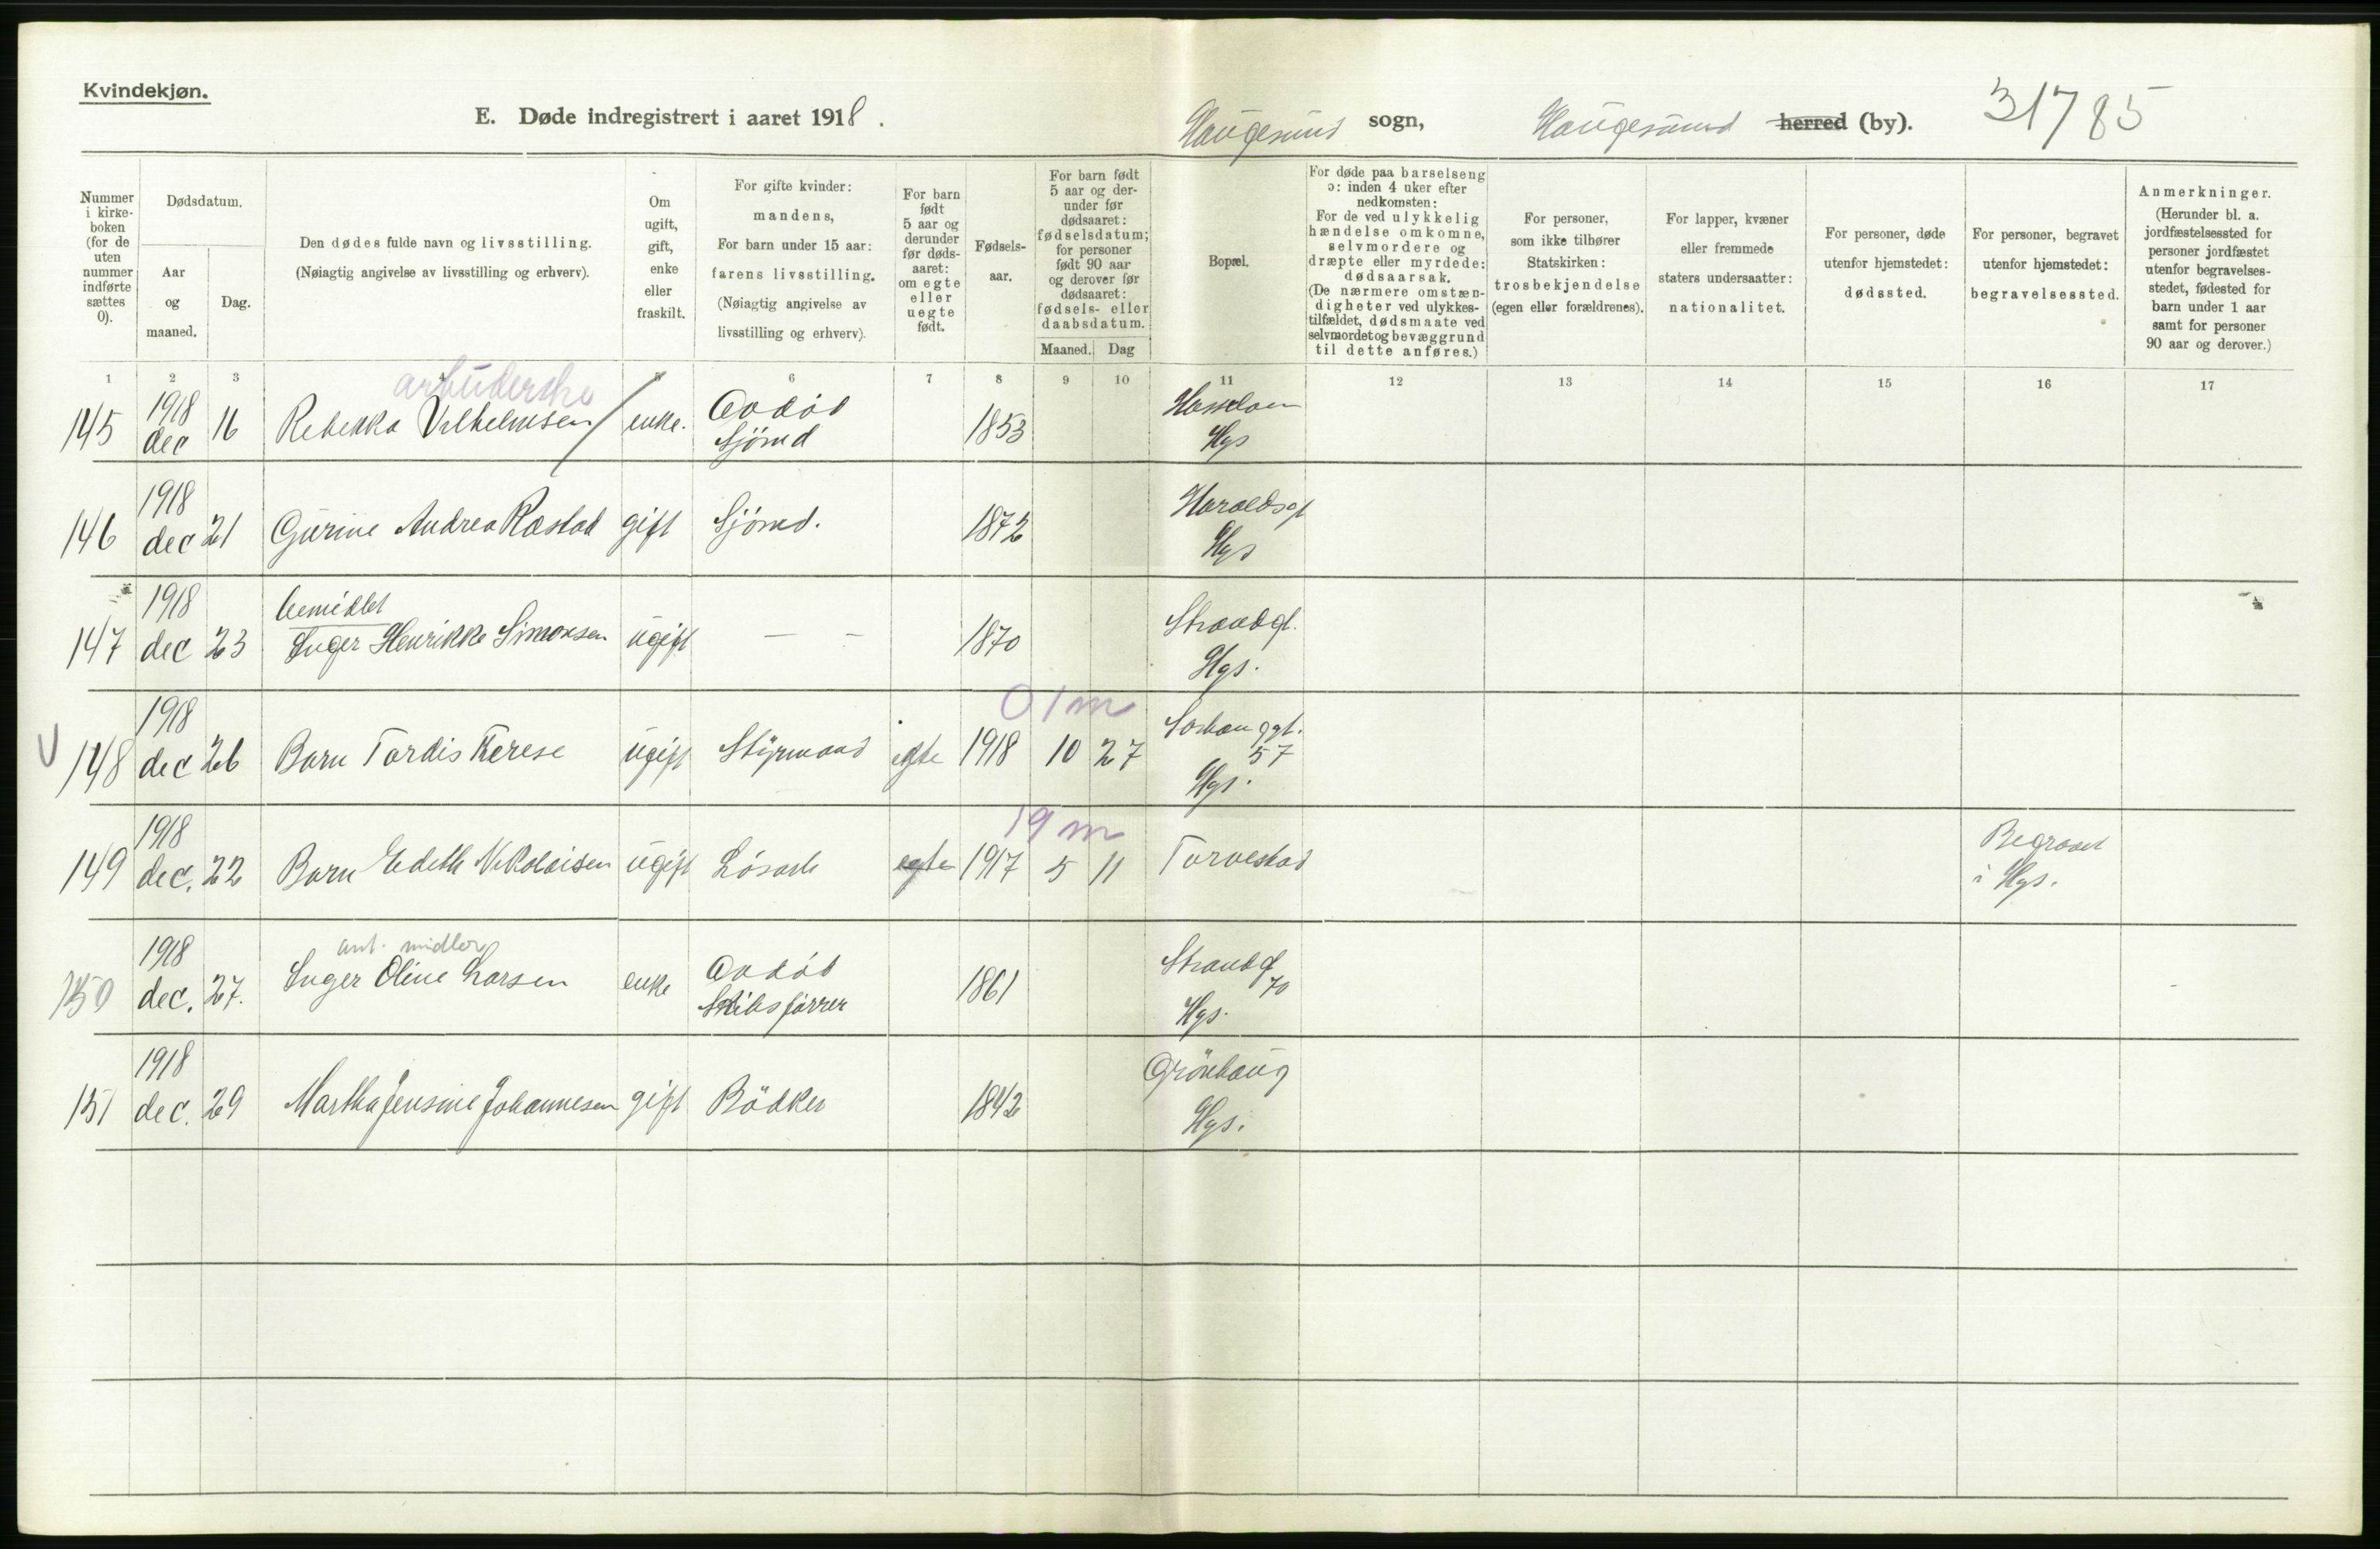 Kvindekjøn.
E. Døde indregistrert i aaret 1918.
Haugesund sogn, Haugesund herred (by). 31785
Nummer i kirke-boken (for de uten nummer indførte sættes 0).
Dødsdatum.
Aar og maaned.
Dag.
Den dødes fulde navn og livsstilling.
(Nøiagtig angivelse av livsstilling og erhverv).
Om ugift, gift, enke eller fraskilt.
For gifte kvinder: mandens,
For barn under 15 aar: farens livsstilling.
(Nøiagtig angivelse av livsstilling og erhverv).
For barn født 5 aar og derunder før døds-aaret: om egte eller uegte født.
Fødsels-aar.
For barn født 5 aar og der-under før dødsaaret: fødselsdatum; for personer født 90 aar og derover før dødsaaret: fødsels- eller daabsdatum.
Maaned. Dag
Bopæl.
For døde paa barselseng ɔ: inden 4 uker efter nedkomsten:
For de ved ulykkelig hændelse omkomne, selvmordere og dræpte eller myrdede: dødsaarsak.
(De nærmere omstæn-digheter ved ulykkes-tilfældet, dødsmaate ved selvmordet og bevæggrund til dette anføres.)
For personer, som ikke tilhører Statskirken: trosbekjendelse (egen eller forældrenes).
For lapper, kvæner eller fremmede staters undersaatter: nationalitet.
For personer, døde utenfor hjemstedet: dødssted.
For personer, begravet utenfor hjemstedet: begravelsessted.
Anmerkninger.
(Herunder bl. a. jordfæstelsessted for personer jordfæstet utenfor begravelses-stedet, fødested for barn under 1 aar samt for personer 90 aar og derover.)
1 2 3 4 5 6 7 8 9 10 11 12 13 14 15 16 17
arbuderske
145 1918 dec 16 Rebekka Vilhelmsen enke. Avdöd Sjömd 1853 Hasseloen Hgs
146 1918 dec 21 Gurine Andrea Røstad gift Sjömd. 1872 Haraldsgt Hgs
bemidlet
147 1918 dec 23 Inger Henrikke Simonsen ugift — — 1870 Strandgt. Hgs.
0 1 m
V 148 1918 dec 26 Barn Tordis Terese ugift Styrmand egte 1918 10 27 57 Hgs.
19 m
149 1918 dec. 22 Barn Edeth Nikolaisen ugift Lösarb egte 1917 5 11 Torvestad Begravet i Hgs.
ant. midler
150 1918 dec. 27. Inger Oline Larsen enke Avdöd Skibsförrer 1861 Strandgt 70 Hgs.
151 1918 dec. 29 Martha Jensine Johannesen gift Bödker 1842 Grönhaug Hgs.